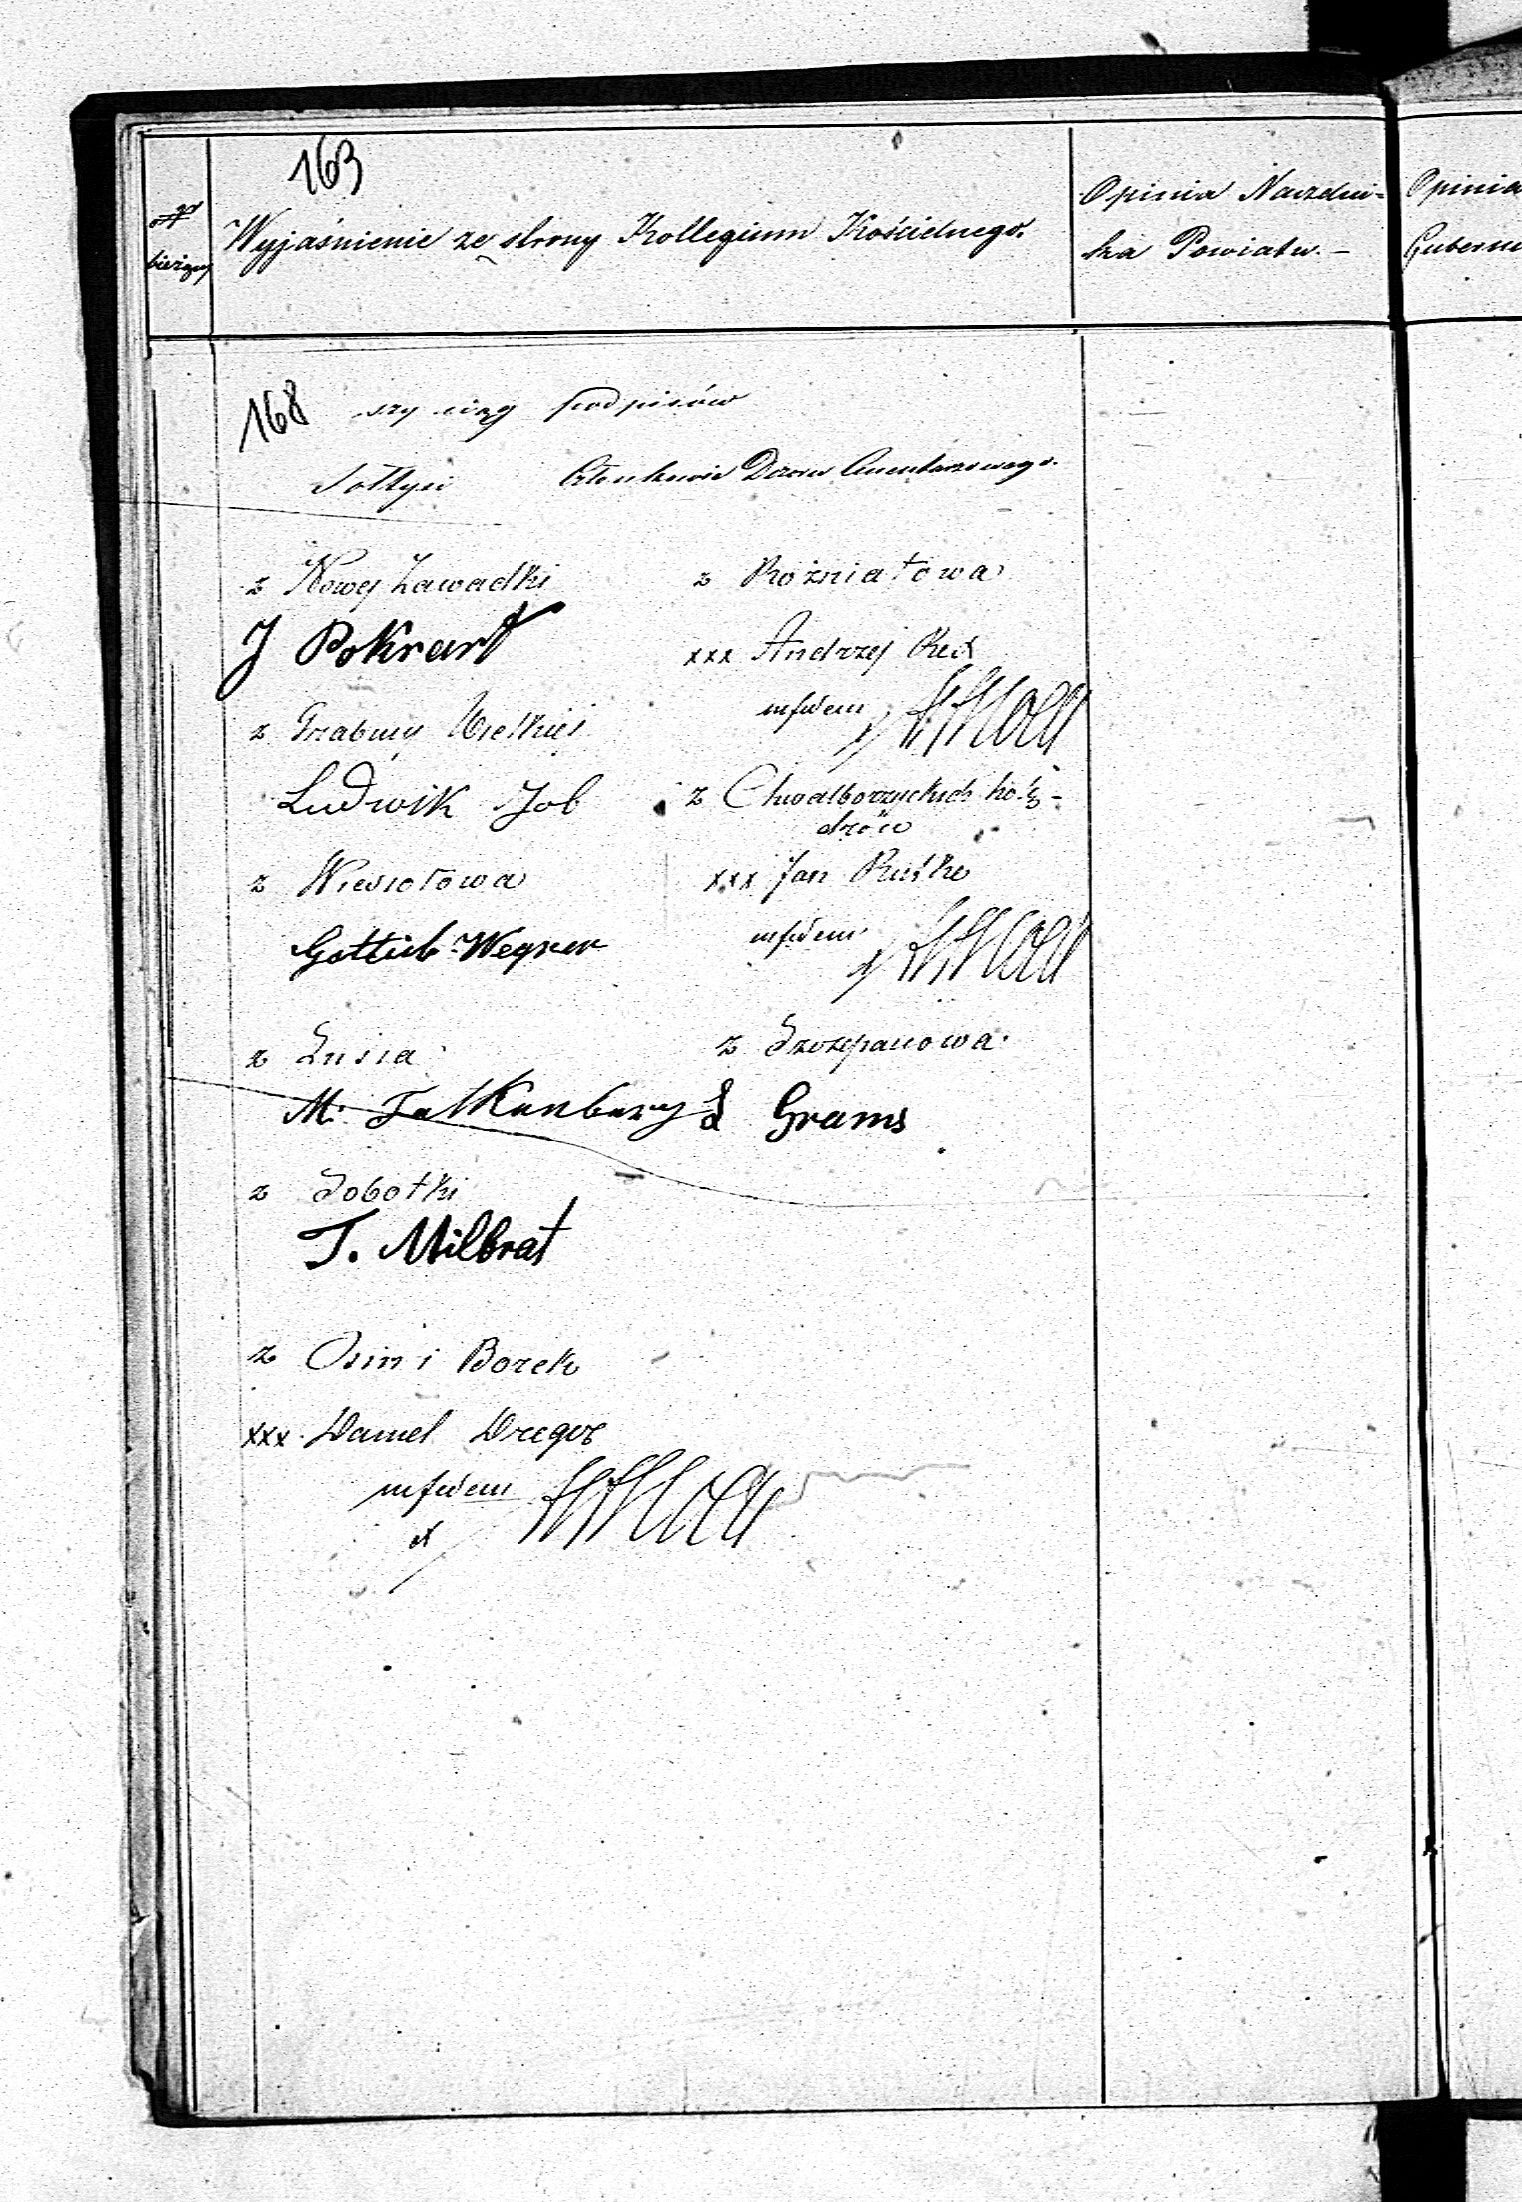 163
№ bieżący
Wyjaśnienie ze strony Kollegium Kościelnego.
Opinia Naczelni-
ka Powiatu. -
Opinia
Gubern
168
szy ciąg podpisów
Sołtysi
Członkowie Dozoru Cmentarzowego.
z Nowej Zawadki
J Pokrant
z Grabiny Wielkiej
Ludwik Job
z Wiesiołowa
Gottlieb Wegner
z Lusia
M. Falkenberg
z Sobotki
T. Milbrat
z Osin i Borek
xxx Daniel Dreger
in fidem
z Rożniatowa
xxx Andrzej
in fidem
z Chwalborzyckich holę-
drów
xxx Jan
in fidem
z Szczepanowa.
Grams